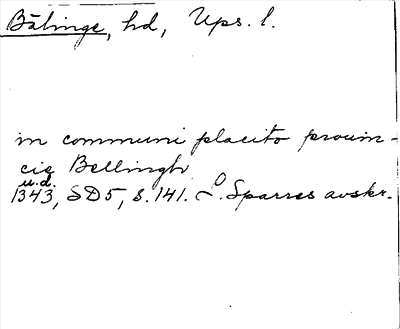 Bälinge, hd, Ups. l.
in communi placito prouin-
cie Bellingh
u.d.
1343, SD5, s. 141. Ö. Sparres avskr.